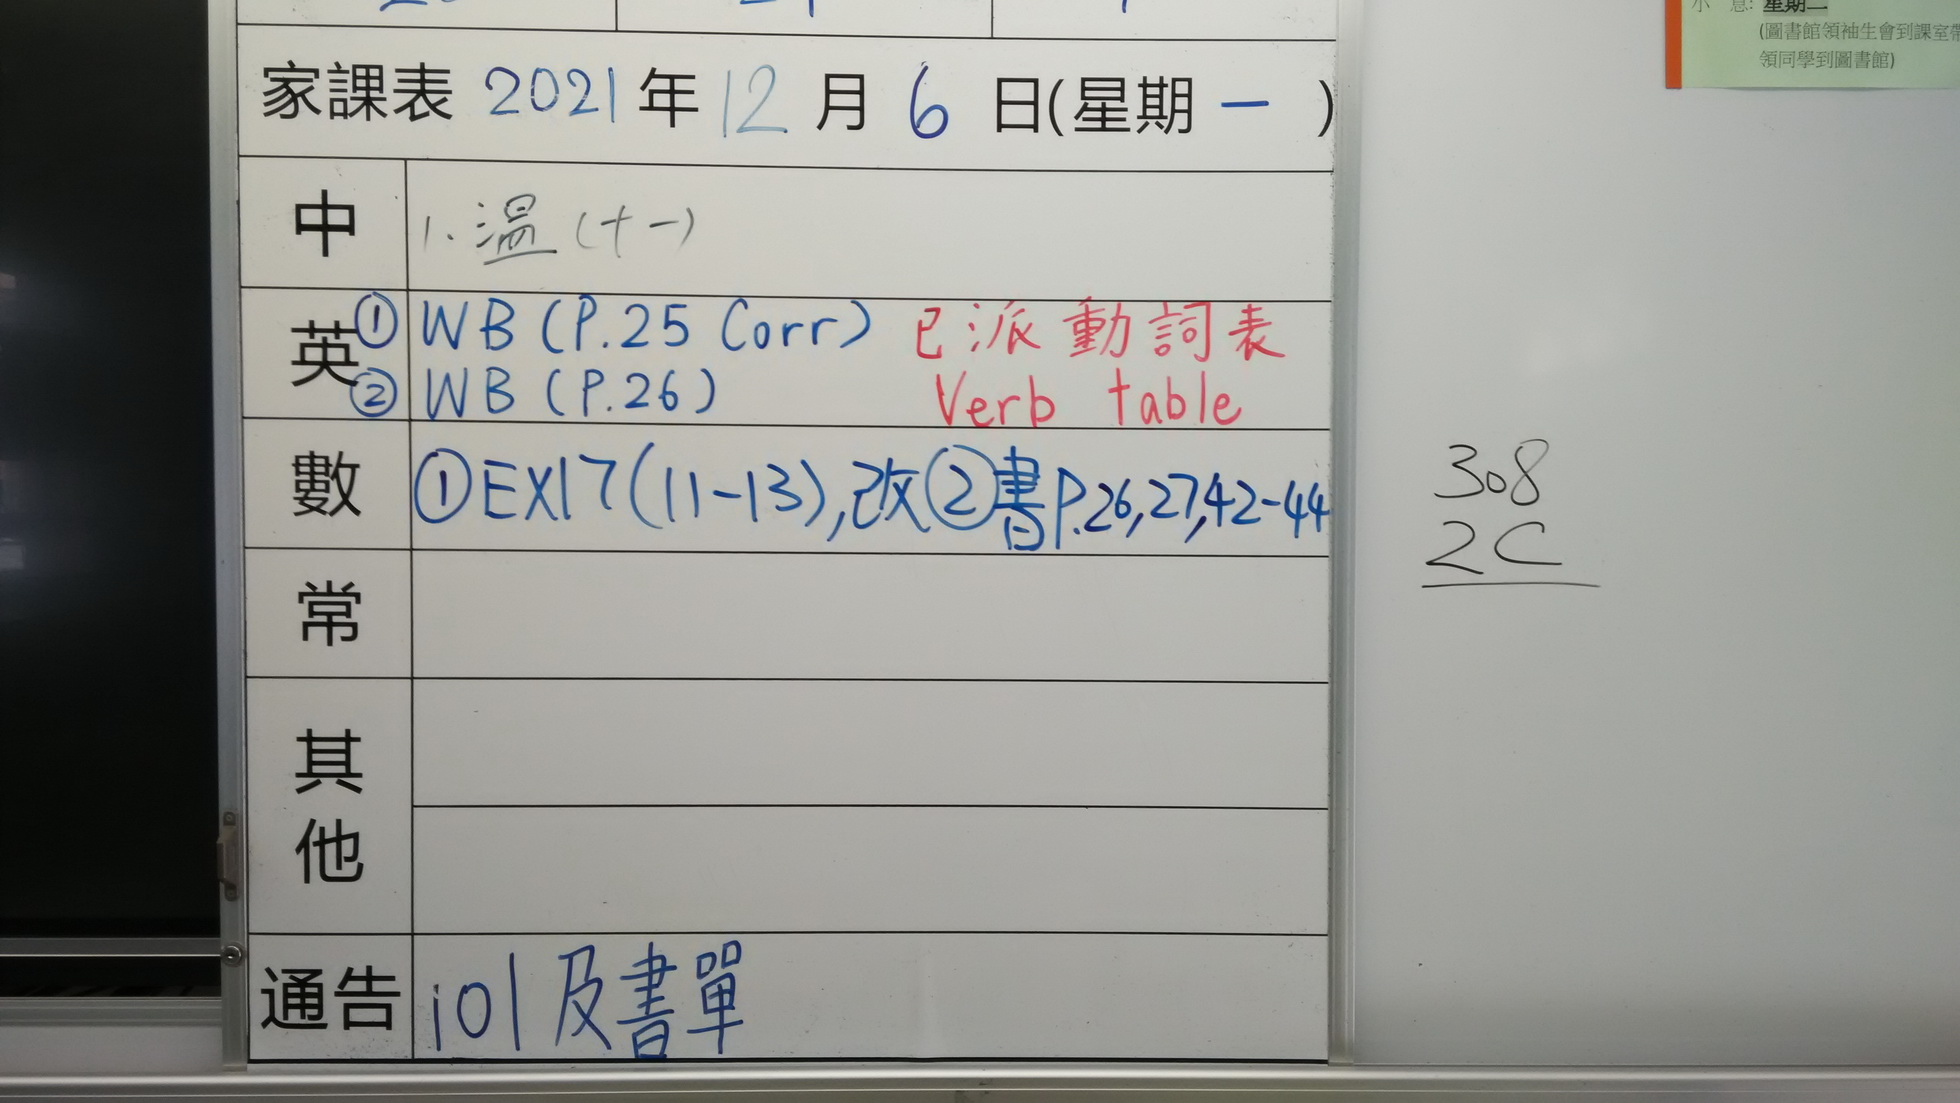 家課表 2021 年 12 月 6 日(星期 一 )
中 1. 溫(十一)
英 ① WB (P.25 Corr) 已派動詞表
② WB (P.26) Verb table
數 ①EX17(11-13),改②書P.26,27,42-44
常
其他
通告 101及書單
308
2C
星期二
(圖書館領袖生會到課室帶
領同學到圖書館)